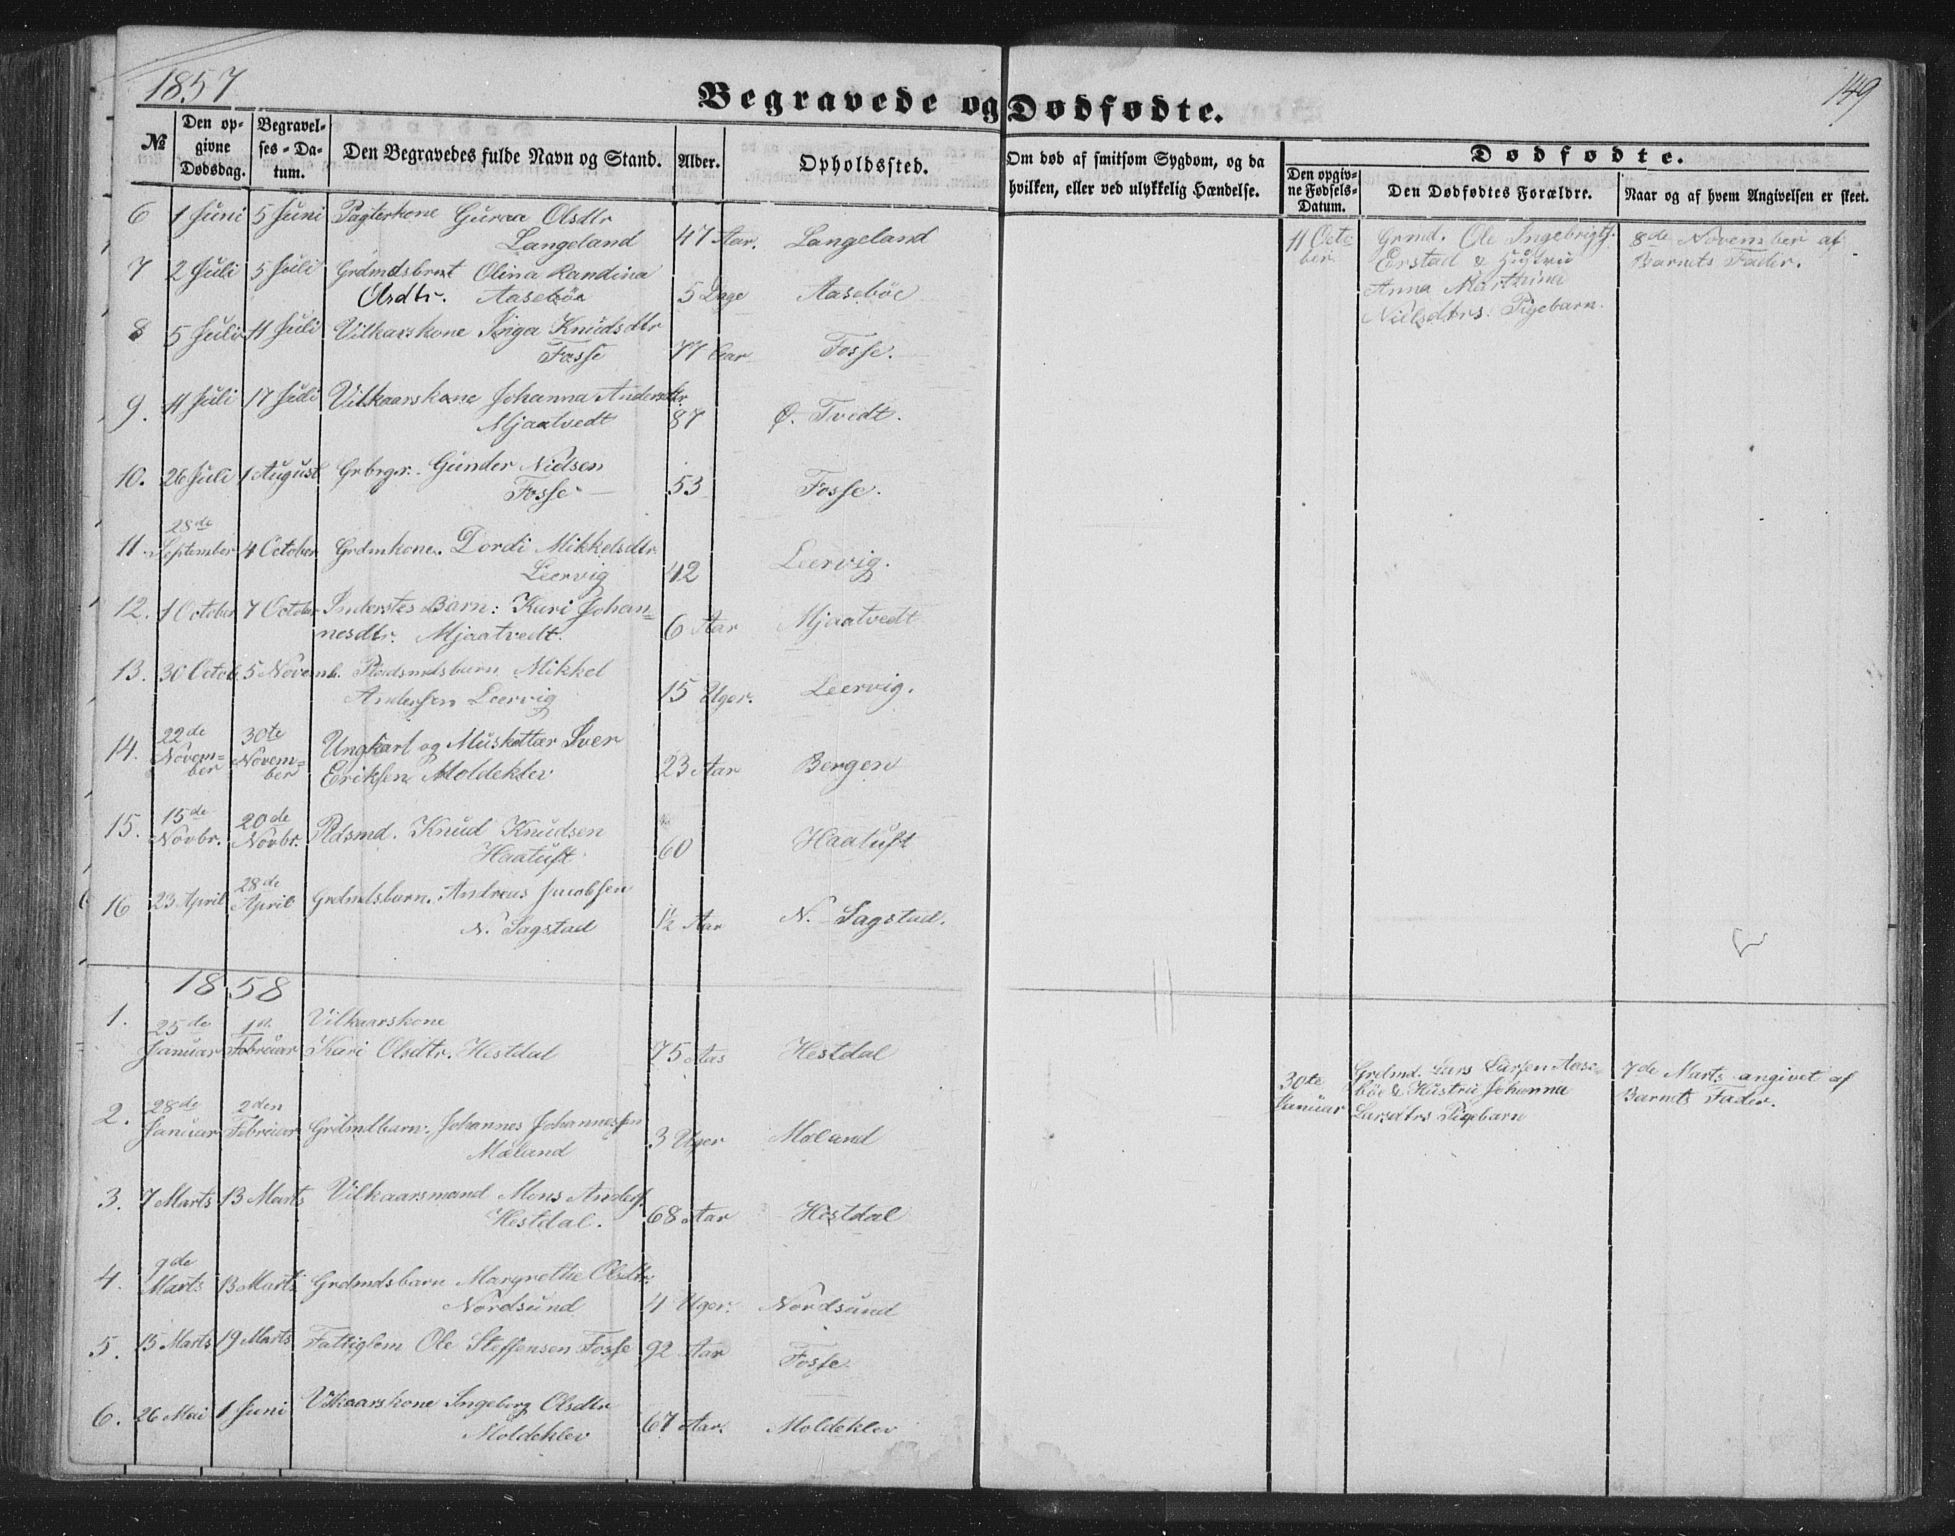 1857
149
Begravede og Dødfødte.
№
Den op-
givne
Dødsdag.
Begravel-
ses-Da-
tum.
Den Begravedes fulde Navn og Stand.
Alder.
Opholdssted.
Om død af smitsom Sygdom, og da
hvilken, eller ved ulykkelig Hændelse.
Dødfødte.
Den opgiv-
ne Fødsels-
Datum.
Den Dødfødtes Forældre.
Naar og af hvem Angivelsen er skeet.
6 1 Juni 5 Juni Pagterkone Guraa Olsdtr
Langeland 47 Aar. Langeland
11 Octo-
ber
Grmd. Ole Ingebrigts.
Erstad & Hustru
Anna Marthina
Nielsdtrs: Pigebarn.
8de November af
Barnets Fader.
7 2 Juli 5 Juli Grdmdsbrnt Olina Randina
Olsdtr. Aasebøe 5 Dage Aasebøe
8 5 Juli 11 Juli Vilkaarskone Inga Knudsdtr
Fosse 77 Aar Fosse.
9. 11 Juli 17 Juli Vilkaarskone Johanna Andersdtr.
Mjaatvedt 87 Ø. Tvedt.
10. 26 Juli 1 August Grbrgr. Gunder Nielsen
Fosse 53 Fosse.
11. 28de
September 4 October Grdmkone. Dordi Mikkelsdtr
Leervig 42 Leervig.
12. 1 October 7 October Inderstes Barn: Kari Johan-
nesdtr. Mjaatvedt. 6 Aar Mjaatvedt
13. 30 Octob. 5 Novemb. Pladsmdsbarn Mikkel
Andersen Leervig 15 Uger. Leervig.
14. 22de
Novem-
ber
30te
Novem-
ber
Ungkarl og Musketter Iver
Eriksen Moldeklev 23 Aar Bergen
15. 15de
Novbr.
20de
Novbr.
Pldsmd. Knud Knudsen
Haatuft 60 Haatuft
16 23 April 28de
April
Grdmdsbarn. Andreas Jacobsen
N. Sagstad 1½ Aar N. Sagstad.
1858
1. 25de
Januar
1st
Februar
Vilkaarskone
Kari Olsdtr. Hestdal 75 Aar Hestdal
30te
Januar
Grdmd. Lars Larsen Aase-
bøe & Hustru Johanna
Larsdtrs Pigebarn
7de Marts angivet af
Barnets Fader.
2. 28de
Januar
2den
Februar
Grdmdbarn: Johannes Johannessen
Mæland 3 Uger Mæland
3. 7 Marts 13 Marts Vilkaarsmand Mons Anders.
Hestdal. 68 Aar Hestdal
4. 9de
Marts 13 Marts Grdmdsbarn Margrethe Olsdtr.
Nordsund 4 Uger. Nordsund
5. 15 Marts 19 Marts Fattiglem Ole Steffensen Fosse 92 Aar Fosse
6. 26 Mai 1 Juni Vilkaarskone Ingeborg Olsdtr
Moldeklev 67 Aar. Moldeklev